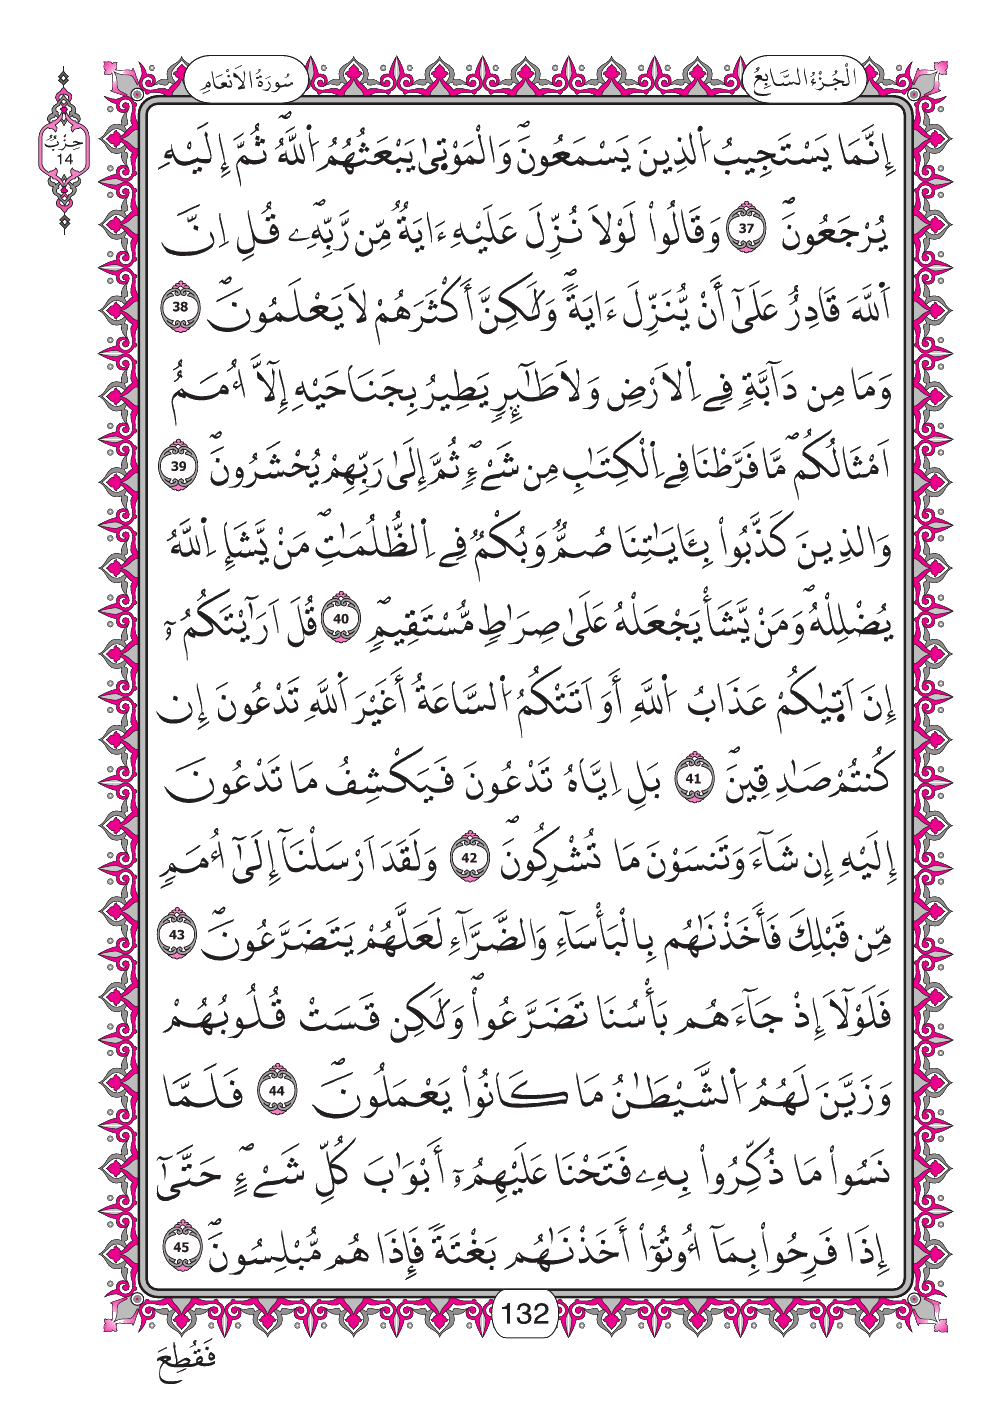 سُورَةُ الاَنْعَامِ
الْجُزْءُ السَّابِعُ
حِزْبٌ
14
إِنَّمَا يَسْتَجِيبُ اُ۬لذِينَ يَسْمَعُونَۖ وَالْمَوْت۪يٰ يَبْعَثُهُمُ اُ۬للَّهُۖ ثُمَّ إِلَيْهِ
يُرْجَعُونَۖ 37 وَقَالُواْ لَوْلَا نُزِّلَ عَلَيْهِ ءَايَةٞ مِّن رَّبِّهِۦۖ قُلِ اِنَّ
اَ۬للَّهَ قَادِرٌ عَلَىٰٓ أَنْ يُّنَزِّلَ ءَايَةٗۖ وَلَٰكِنَّ أَكْثَرَهُمْ لَا يَعْلَمُونَۖ 38
وَمَا مِن دَآبَّةٖ فِے اِ۬لَارْضِ وَلَا طَٰٓئِرٖ يَطِيرُ بِجَنَاحَيْهِ إِلَّآ أُمَمٌ
اَمْثَالُكُمۖ مَّا فَرَّطْنَا فِے اِ۬لْكِتَٰبِ مِن شَےْءٖۖ ثُمَّ إِلَىٰ رَبِّهِمْ يُحْشَرُونَۖ 39
وَالذِينَ كَذَّبُواْ بِـَٔايَٰتِنَا صُمّٞ وَبُكْمٞ فِے اِ۬لظُّلُمَٰتِۖ مَنْ يَّشَإِ اِ۬للَّهُ
يُضْلِلْهُۖ وَمَنْ يَّشَأْ يَجْعَلْهُ عَلَىٰ صِرَٰطٖ مُّسْتَقِيمٖۖ 40 قُلَ اَرَٰٓيْتَكُمُۥٓ
إِنَ اَت۪يٰكُمْ عَذَابُ اُ۬للَّهِ أَوَ اَتَتْكُمُ اُ۬لسَّاعَةُ أَغَيْرَ اَ۬للَّهِ تَدْعُونَ إِن
كُنتُمْ صَٰدِقِينَۖ 41 بَلِ اِيَّاهُ تَدْعُونَ فَيَكْشِفُ مَا تَدْعُونَ
إِلَيْهِ إِن شَآءَ وَتَنسَوْنَ مَا تُشْرِكُونَۖ 42 وَلَقَدَ اَرْسَلْنَآ إِلَىٰٓ أُمَمٖ
مِّن قَبْلِكَ فَأَخَذْنَٰهُم بِالْبَأْسَآءِ وَالضَّرَّآءِ لَعَلَّهُمْ يَتَضَرَّعُونَۖ 43
فَلَوْلَآ إِذْ جَآءَهُم بَأْسُنَا تَضَرَّعُواْۖ وَلَٰكِن قَسَتْ قُلُوبُهُمْ
وَزَيَّنَ لَهُمُ اُ۬لشَّيْطَٰنُ مَا كَانُواْ يَعْمَلُونَۖ 44 فَلَمَّا
نَسُواْ مَا ذُكِّرُواْ بِهِۦ فَتَحْنَا عَلَيْهِمُۥٓ أَبْوَٰبَ كُلِّ شَےْءٍۖ حَتَّىٰٓ
إِذَا فَرِحُواْ بِمَآ أُوتُوٓاْ أَخَذْنَٰهُم بَغْتَةٗ فَإِذَا هُم مُّبْلِسُونَۖ 45
132
فَقُطِعَ